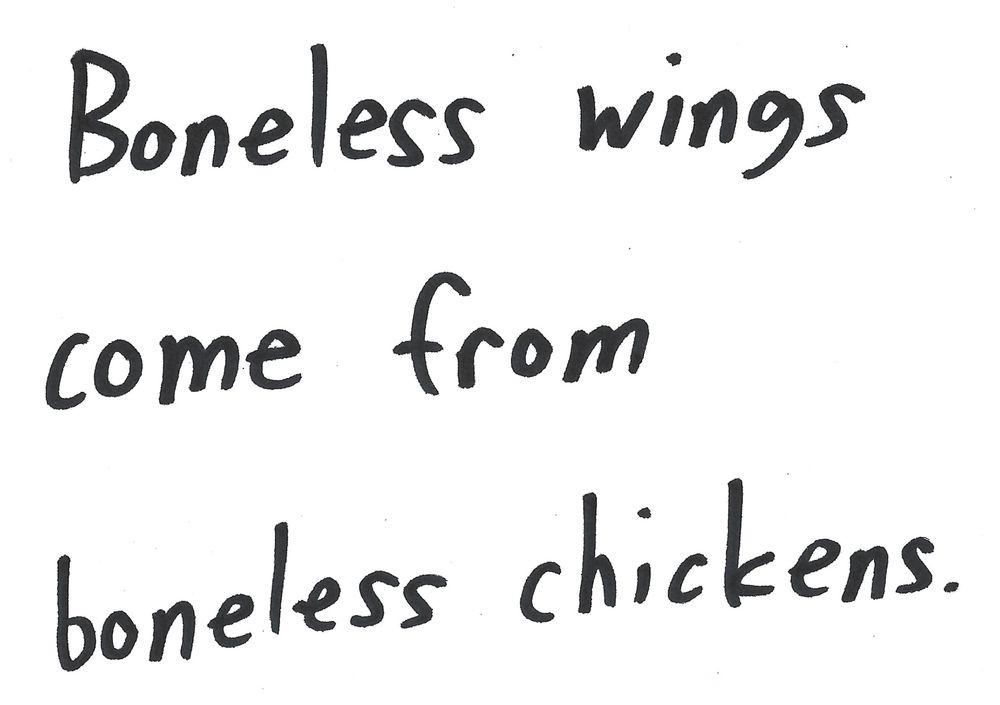 Boneless wings
come from
boneless chickens.